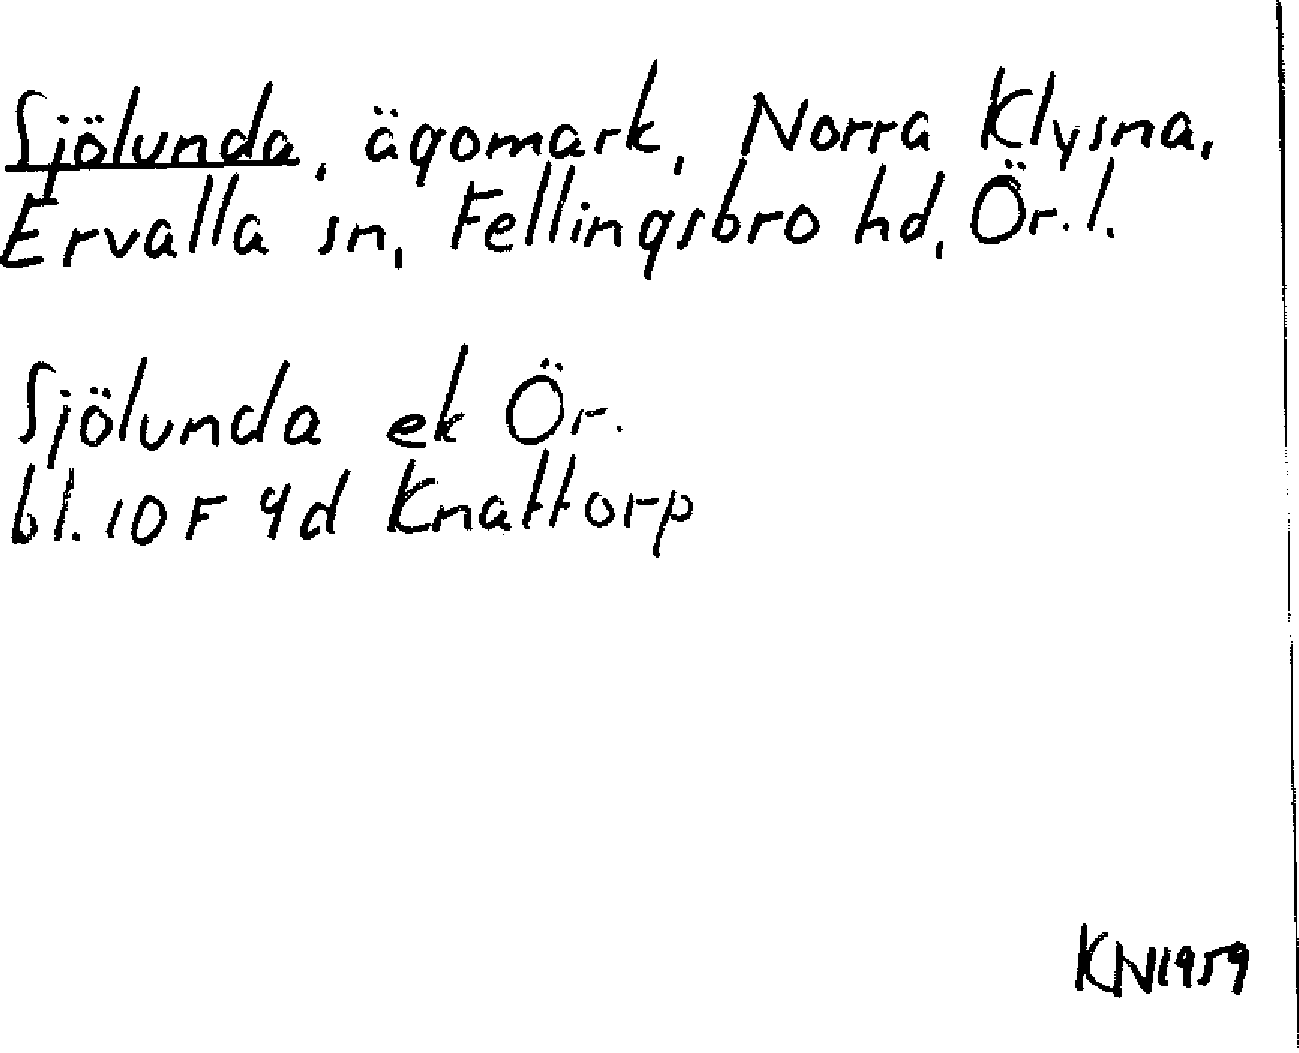 Sjölunda, ägomark, Norra Klysna,
Ervalla sn, Fellingsbro hd, Ör. l.
Sjölunda ek Ör.
bl. 10 F 4d Knattorp
KN 1959